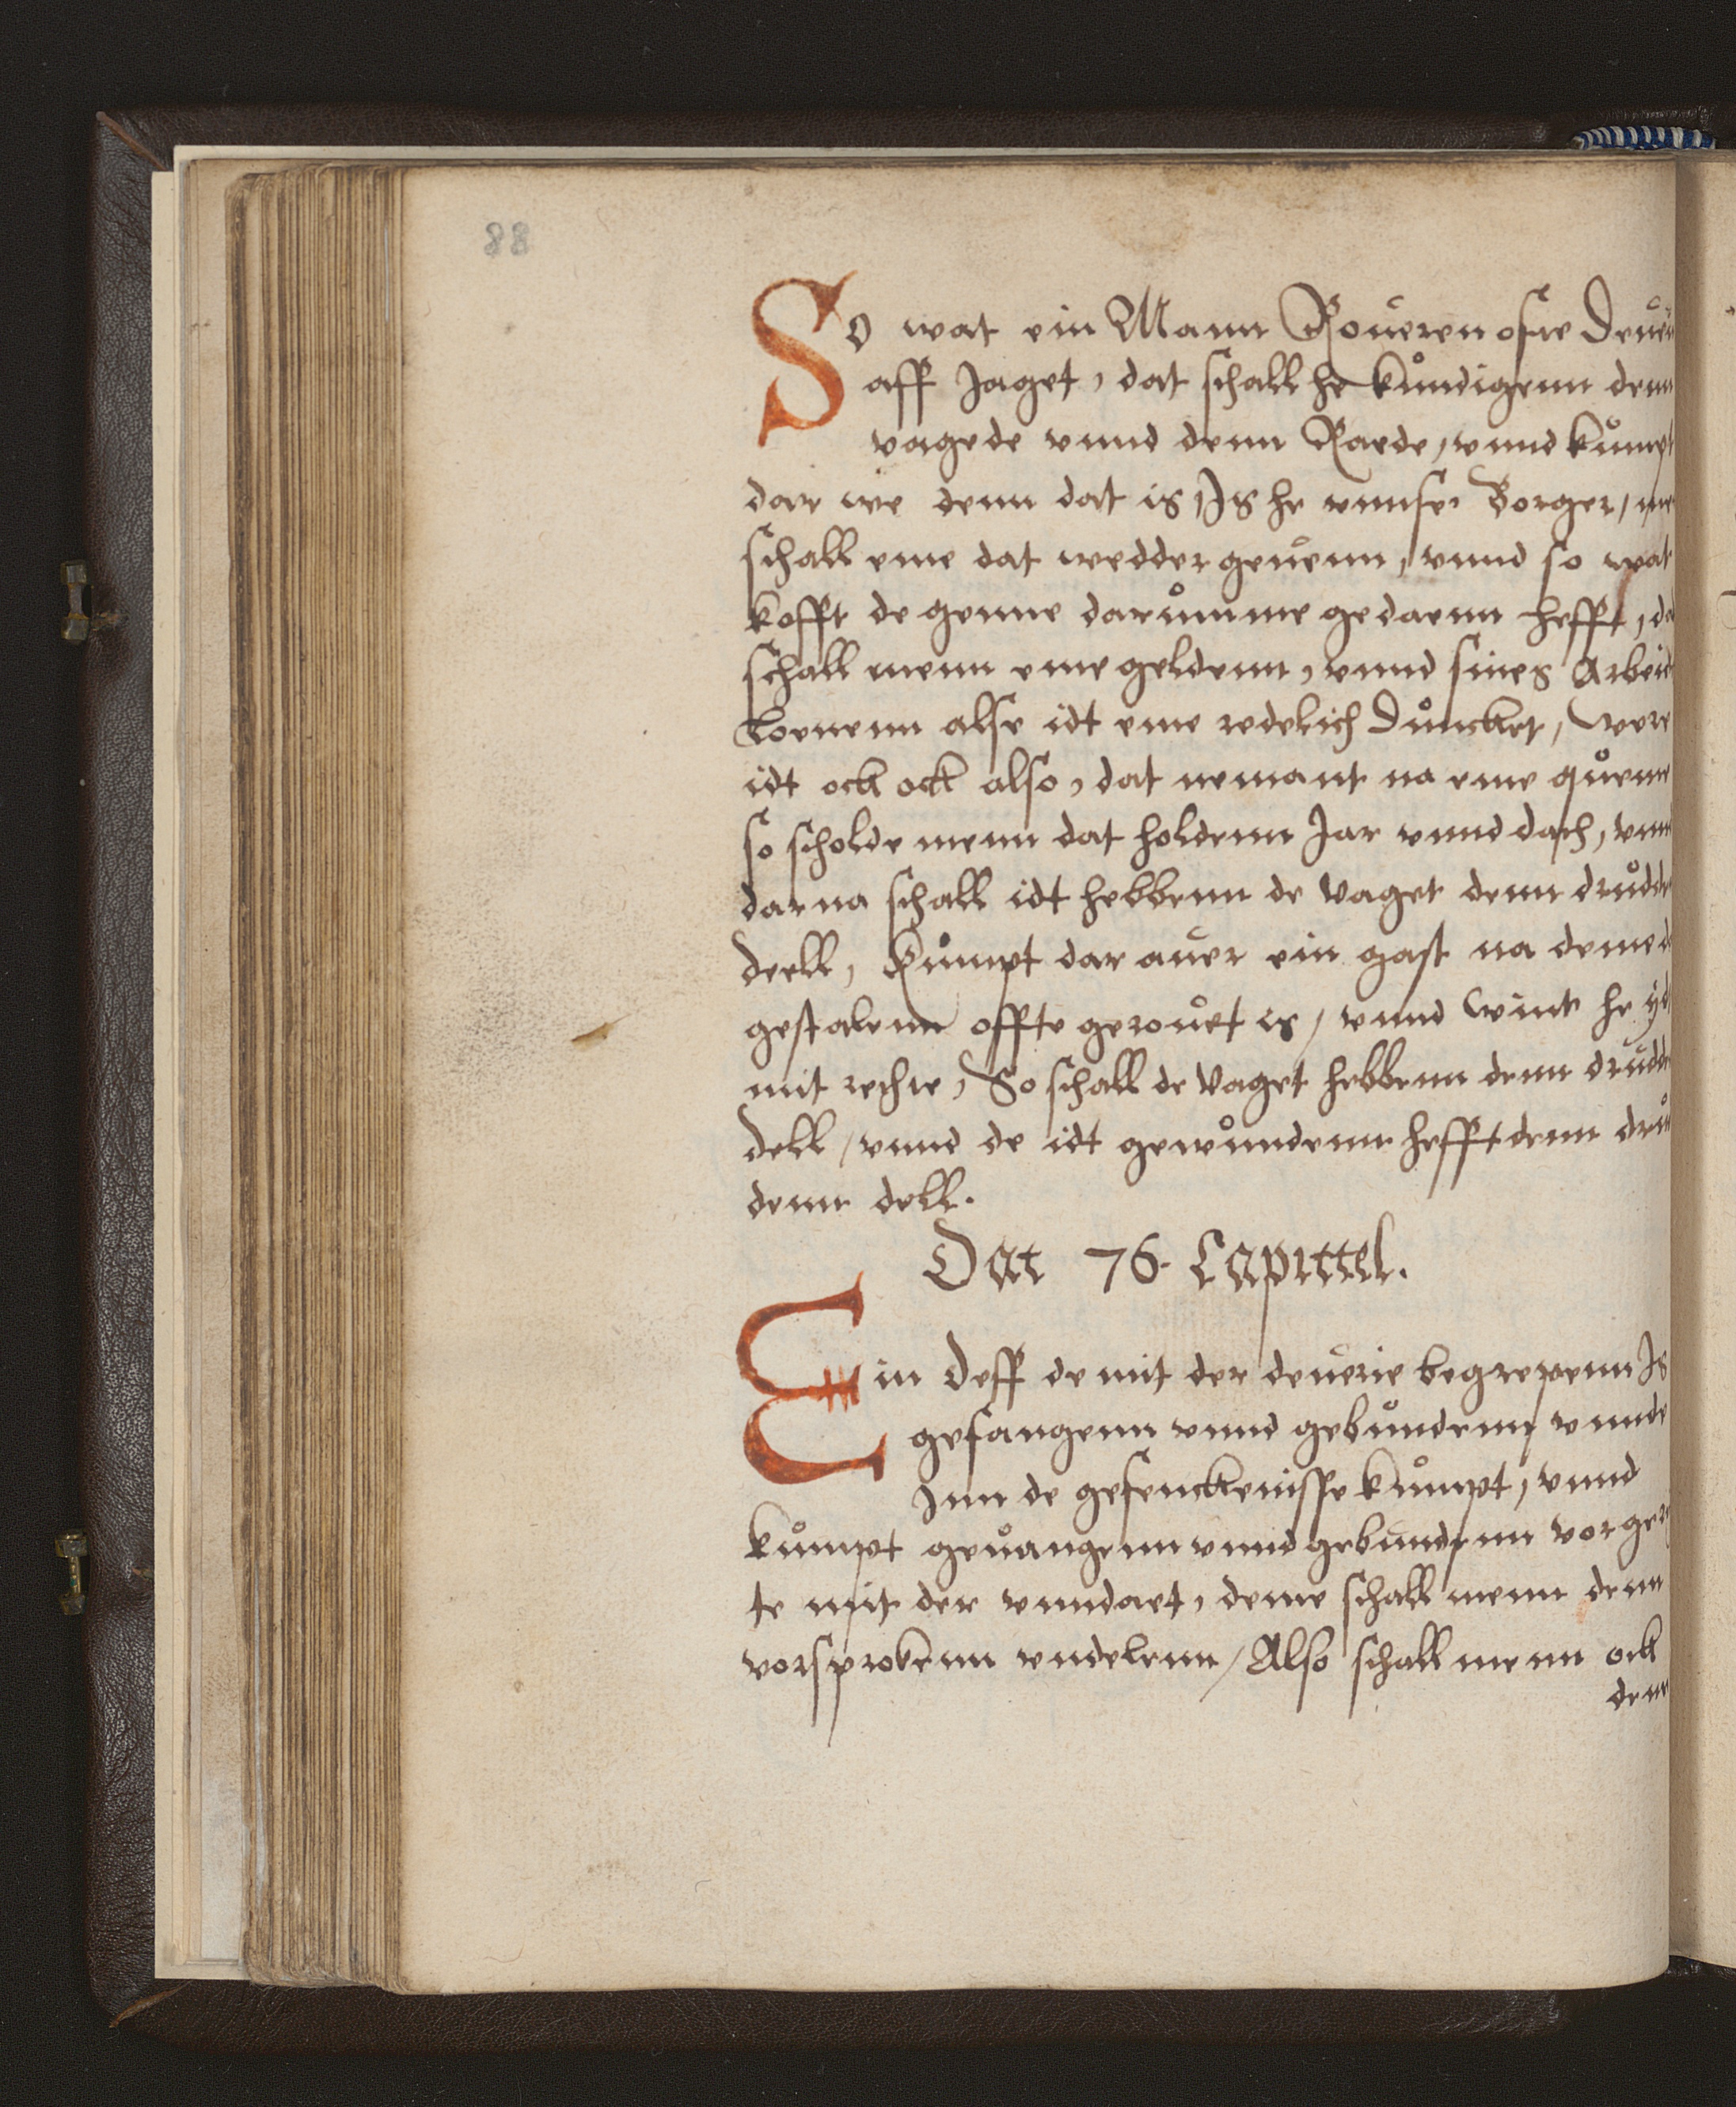 88
So wat ein Mann Roueren ofte Deuen
aff Jaget, dat schall he kundigenn denn
vagede vnnd denn Raede, vnnd kumpt
dar we denn dat is, Is he vnnse Borger, me
schall eme dat wedder geuenn, vnnd so wat
kofft de genne darumme gedaenn hefft, dat
schall menn eme geldenn, vnnd sines Arbeid
Loenenn alse idt eme redelich Duncket, Were
idt ock ock also, dat nemant na eme queme
so scholde menn dat holdenn Jar vnnd dach, vnn
darna schall idt hebbenn de Vaget denn drudde
deell, Kumpt dar auer ein gast na deme
gestalenn offte gerouet is, vnnd wint he yd
mit rechte, So schall de Vaget hebbenn denn drudde
dell, vnnd de idt gewundenn hefft denn drud
denn dell.
Dat 76. Capittel.
Ein Deff de mit der deuerie begrepenn Is
gefangenn vnnd gebundenn vnnde
Jnn de gefenckenisse kumpt, vnnd
kumpt geuangenn vnnd gebundenn vor gerj
te mit der vnndaet, deme schall menn denn
vorsprokenn vndelenn, Also schall menn ock
denn